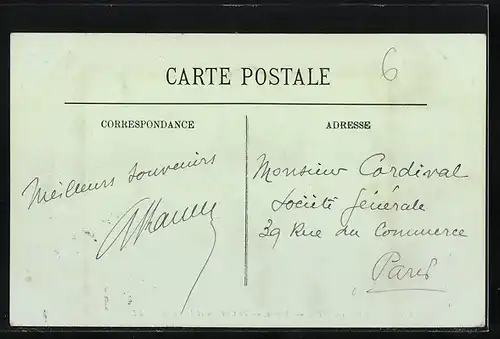 6
CARTE POSTALE
CORRESPONDANCE
ADRESSE
Meilleurs souvenirs
Monsieur Cordival
Société Générale
39 Rue du Commerce
Paris